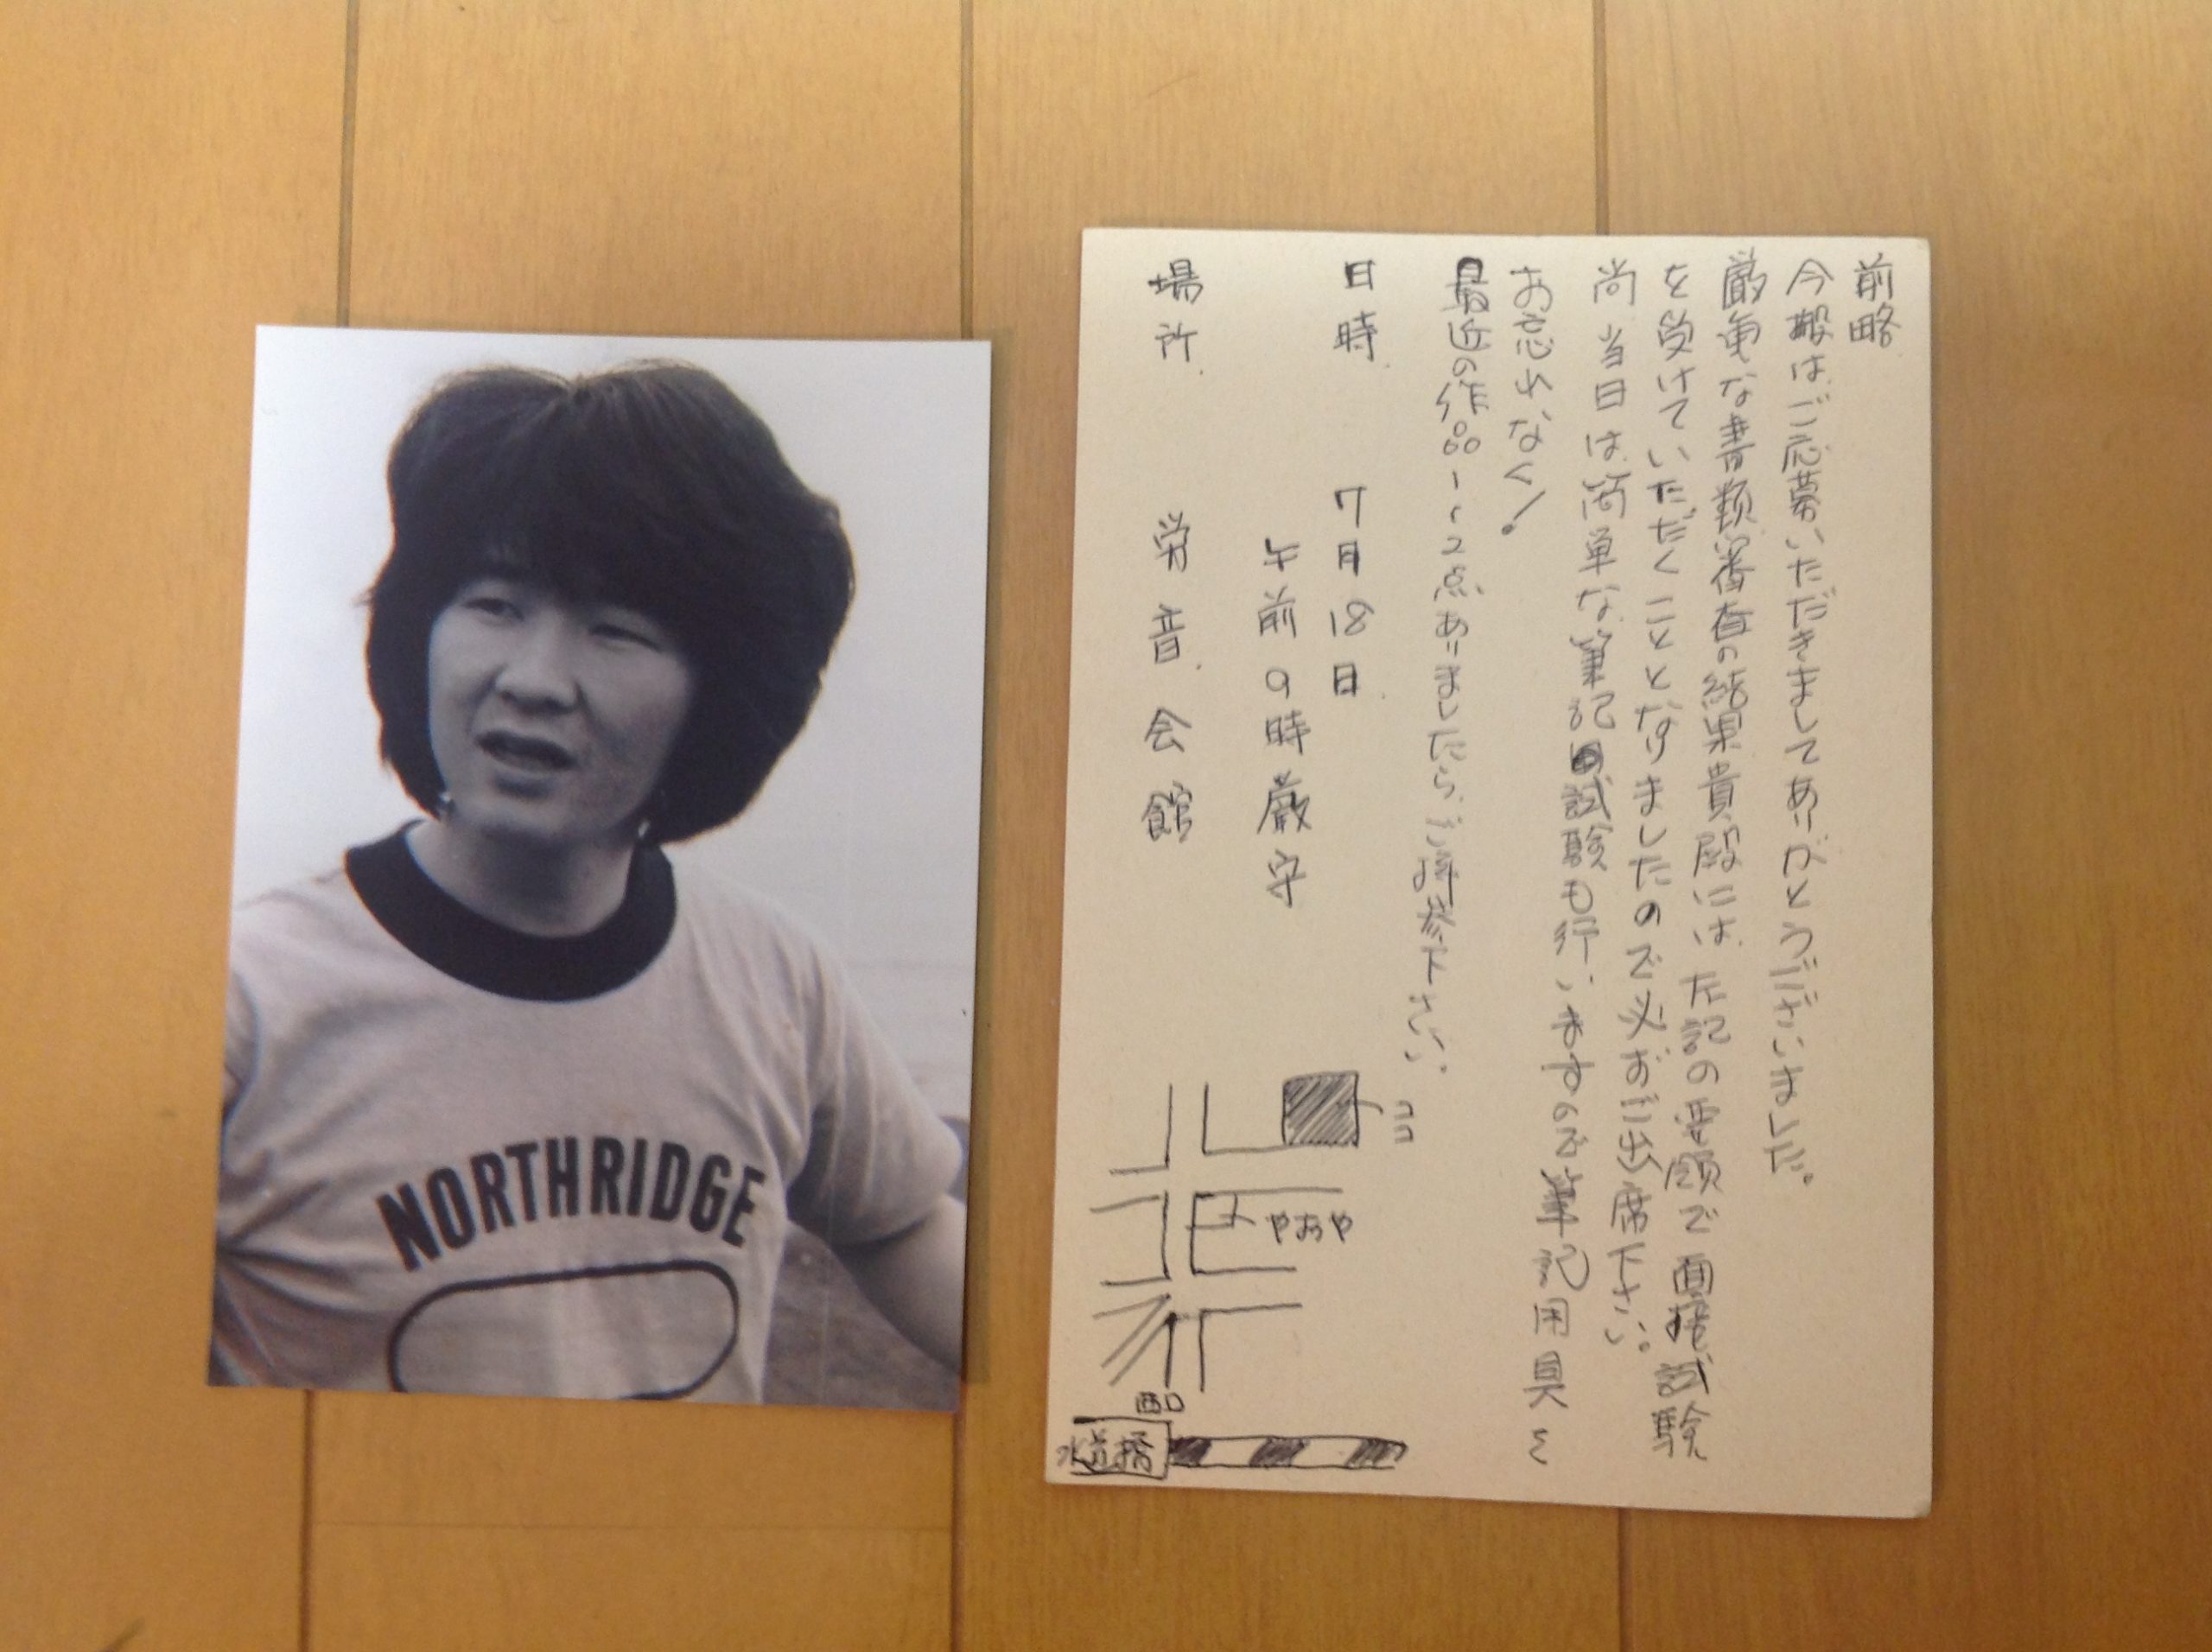 NORTHRIDGE
前略
今般はご応募いただきましてありがとうございました。
厳重な書類審査の結果貴殿には左記の要領で面接試験
を受けていただくこととなりましたので必ずご出席下さい。
尚当日は簡単な筆記試験も行いますので筆記用具を
お忘れなく!
最近の作品1〜2点ありましたらご持参下さい。
日時 7月18日
午前9時厳守
場所 労音会館
ココ
やおや
西口
水道橋